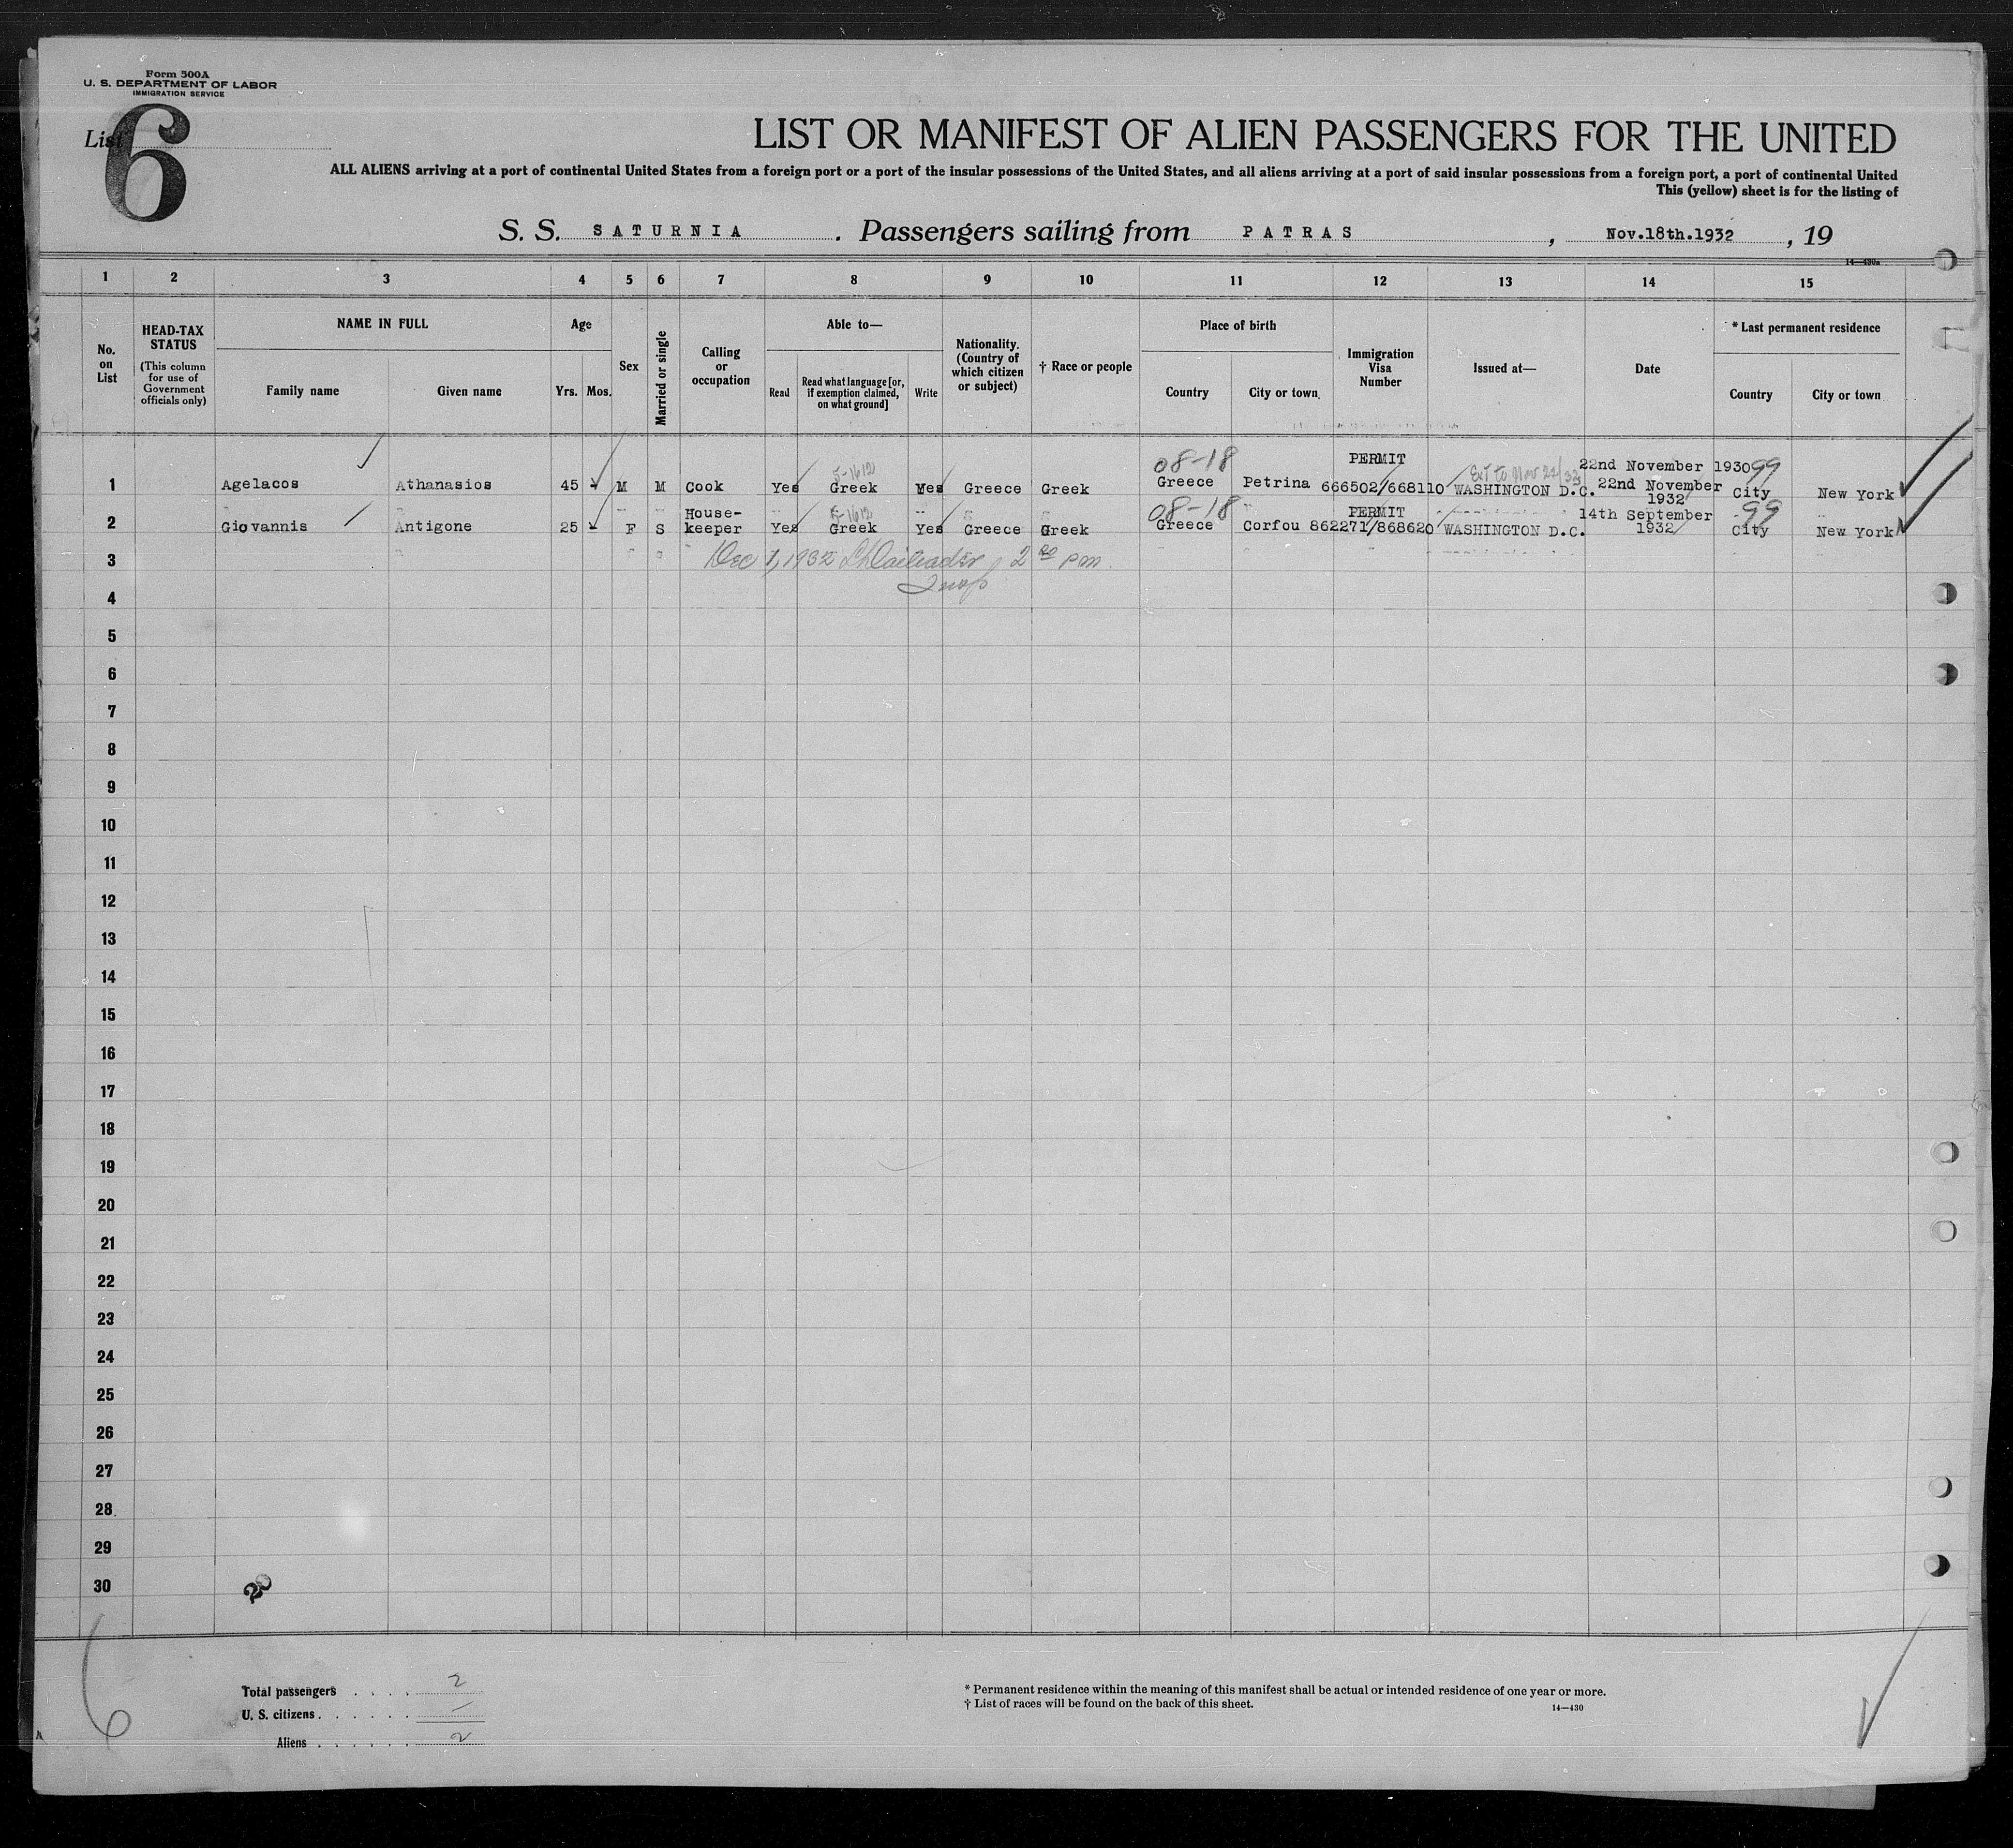 Form 500A
U. S. DEPARTMENT OF LABOR
IMMIGRATION SERVICE
List 6
LIST OR MANIFEST OF ALIEN PASSENGERS FOR THE UNITED
ALL ALIENS arriving at a port of continental United States from a foreign port or a port of the insular possessions of the United States, and all aliens arriving at a port of said insular possessions from a foreign port, a port of continental United
This (yellow) sheet is for the listing of
S. S. SATURNIA . Passengers sailing from PATRAS , Nov.18th.1932 , 19
14—430a
1 2 3 4 5 6 7 8 9 10 11 12 13 14 15
No. on List
HEAD-TAX STATUS
(This column for use of Government officials only)
NAME IN FULL
Family name Given name
Age
Yrs. Mos.
Sex
Married or single
Calling or occupation
Able to—
Read
Read what language [or, if exemption claimed, on what ground]
Write
Nationality. (Country of which citizen or subject)
† Race or people
Place of birth
Country City or town
Immigration Visa Number
Issued at—
Date
* Last permanent residence
Country City or town
08-18 PERMIT Ext to Nov 22/32 22nd November 1930 99
5-1612
1 Agelacos Athanasios 45 - M M Cook Yes Greek Yes Greece Greek Greece Petrina 666502/668110 WASHINGTON D.C. 22nd November 1932 City New York
08-18 PERMIT 14th September 99
5-1612
2 Giovannis Antigone 25 - F S House-keeper Yes Greek Yes Greece Greek Greece Corfou 862271/868620 WASHINGTON D.C. 1932 City New York
3 Dec 1, 1932 2 00 pm
Insp
4
5
6
7
8
9
10
11
12
13
14
15
16
17
18
19
20
21
22
23
24
25
26
27
28
29
30
6
Total passengers . . . . 2
U. S. citizens . . . . . . -
Aliens . . . . . . 2
* Permanent residence within the meaning of this manifest shall be actual or intended residence of one year or more.
† List of races will be found on the back of this sheet.
14—430